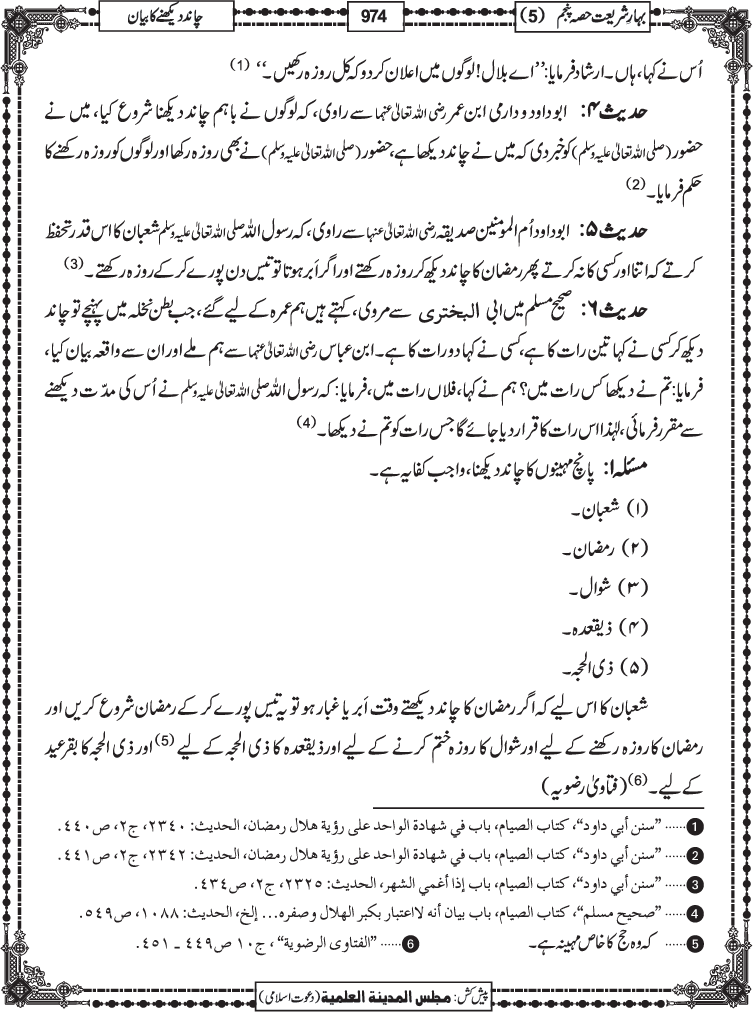 بہار شریعت حصہ پنجم (5)
974
چاند دیکھنے کا بیان
اُس نے کہا، ہاں۔ ارشاد فرمایا: ’’اے بلال! لوگوں میں اعلان کردو کہ کل روزہ رکھیں۔‘‘ (1)
حدیث ۴: ابو داود و دارمی ابن عمر رضی اللہ تعالیٰ عنہما سے راوی، کہ لوگوں نے باہم چاند دیکھنا شروع کیا، میں نے
حضور (صلی اللہ تعالیٰ علیہ وسلم) کو خبر دی کہ میں نے چاند دیکھا ہے، حضور (صلی اللہ تعالیٰ علیہ وسلم) نے بھی روزہ رکھا اور لوگوں کو روزہ رکھنے کا
حکم فرمایا۔ (2)
حدیث ۵: ابو داود اُم المومنین صدیقہ رضی اللہ تعالیٰ عنہا سے راوی، کہ رسول اللہ صلی اللہ تعالیٰ علیہ وسلم شعبان کا اس قدر تحفظ
کرتے کہ اتنا اور کسی کا نہ کرتے پھر رمضان کا چاند دیکھ کر روزہ رکھتے اور اگر اَبر ہوتا تو تیس دن پورے کر کے روزہ رکھتے۔ (3)
حدیث ۶: صحیح مسلم میں ابی البختری سے مروی، کہتے ہیں ہم عمرہ کے لیے گئے، جب بطن نخلہ میں پہنچے تو چاند
دیکھ کر کسی نے کہا تین رات کا ہے، کسی نے کہا دو رات کا ہے۔ ابن عباس رضی اللہ تعالیٰ عنہما سے ہم ملے اور ان سے واقعہ بیان کیا،
فرمایا: تم نے دیکھا کس رات میں؟ ہم نے کہا، فلاں رات میں، فرمایا: کہ رسول اللہ صلی اللہ تعالیٰ علیہ وسلم نے اُس کی مدّت دیکھنے
سے مقرر فرمائی، لہٰذا اس رات کا قرار دیا جائے گا جس رات کو تم نے دیکھا۔ (4)
مسئلہ ۱: پانچ مہینوں کا چاند دیکھنا، واجب کفایہ ہے۔
(۱) شعبان۔
(۲) رمضان۔
(۳) شوال۔
(۴) ذیقعدہ۔
(۵) ذی الحجہ۔
شعبان کا اس لیے کہ اگر رمضان کا چاند دیکھتے وقت اَبر یا غبار ہو تو یہ تیس پورے کر کے رمضان شروع کریں اور
رمضان کا روزہ رکھنے کے لیے اور شوال کا روزہ ختم کرنے کے لیے اور ذیقعدہ کا ذی الحجہ کے لیے (5) اور ذی الحجہ کا بقرعید
کے لیے۔ (6) (فتاویٰ رضویہ)
1 ...... ”سنن أبي داود“، كتاب الصيام، باب في شهادة الواحد على رؤية هلال رمضان، الحديث: ٢٣٤٠، ج٢، ص٤٤٠.
2 ...... ”سنن أبي داود“، كتاب الصيام، باب في شهادة الواحد على رؤية هلال رمضان، الحديث: ٢٣٤٢، ج٢، ص٤٤١.
3 ...... ”سنن أبي داود“، كتاب الصيام، باب إذا أغمي الشهر، الحديث: ٢٣٢٥، ج٢، ص٤٣٤.
4 ...... ”صحيح مسلم“، كتاب الصيام، باب بيان أنه لااعتبار بكبر الهلال وصغره... إلخ، الحديث: ١٠٨٨، ص٥٤٩.
5 ...... کہ وہ حج کا خاص مہینہ ہے۔ 6 ...... ”الفتاوى الرضوية“ ، ج١٠ ص٤٤٩ ـ ٤٥١.
پیش کش: مجلس المدینة العلمیة (دعوت اسلامی)